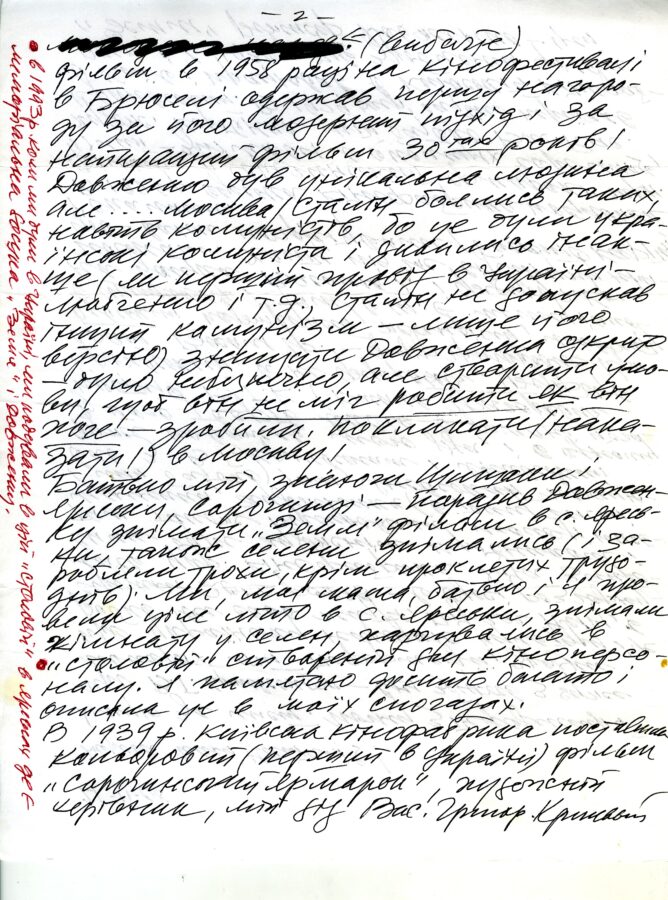 - 2 -
(вибачте)
фільм в 1958 році на кінофестивалі
в Брюселі одержав першу нагоро-
ду за його модерний підхід і за
найкращий фільм 30тих років!
Довженко був унікальна людина
але.... Москва/Сталін боялись таких,
навіть комуністів, бо це були укра-
їнські комуністи і дивились інак-
ше (ми перший провід в Україні -
Любченко і т.д., Сталін не допускав
інший комунізм - лише його
версію) знищити Довженка одкрито
- було небезпечно, але створити умо-
ви, щоб він не міг робити як він
хоче - зробили, покликати (нака-
зати!) в Москву!
Батько мій, знаючи Шишаки,
Яреськи, Сорочинці - порадив Довжен-
ку знімати "Земля" фільм в с. Яресь-
ки, також селяни знімались (і за-
робляли трохи, крім проклятих трудо-
днів). Ми, моя мама, батько і я про-
вели ціле літо в с. Яреськи, знімали
кімнату у селян, харчувались в
"столовій" створеній для кіноперсо-
налу. Я памятаю досить багато і
описала це в моїх спогадах.
В 1939 р. Київська кінофабрика поставила
кольоровий (перший в Україні) фільм
"Сорочинський ярмарок", художній
керівник, мій дід Вас. Григор. Кричевський
• в 1993 р. коли ми були в Україні, ми побували в цій "столовій" в Яреськах де є
меморіальна дошка "Земля", Довженку